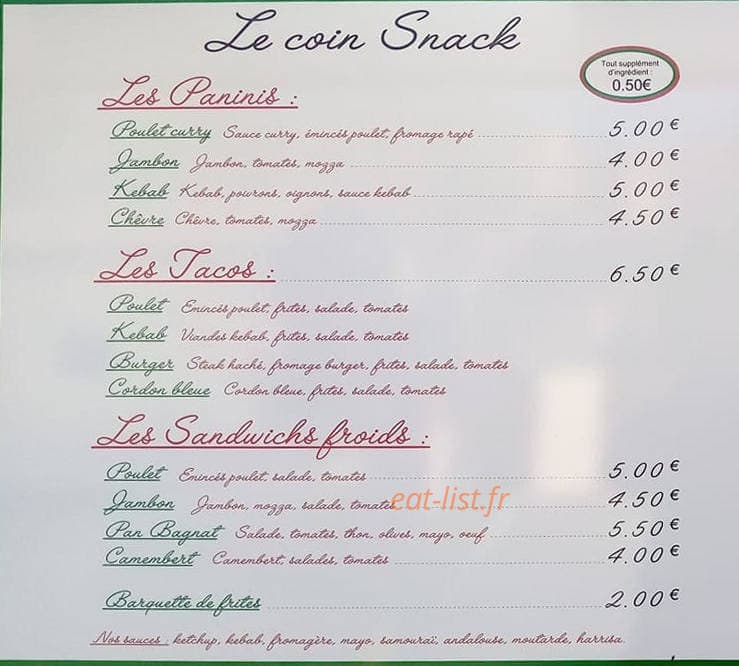 Le coin Snack
Tout supplément
d'ingrédient :
0.50€
Les Paninis :
Poulet curry Sauce curry, émincés poulet, fromage rapé 5.00€
Jambon Jambon, tomates, mozza 4.00€
Kebab Kebab, poivrons, oignons, sauce kebab 5.00€
Chèvre Chèvre, tomates, mozza 4.50€
Les Tacos : 6.50€
Poulet Emincés poulet, frites, salade, tomates
Kebab Viandes kebab, frites, salade, tomates
Burger Steak haché, fromage burger, frites, salade, tomates
Cordon bleue Cordon bleue, frites, salade, tomates
Les Sandwichs froids :
Poulet Emincés poulet, salade, tomates 5.00€
Jambon Jambon, mozza, salade, tomates 4.50€
eat-list.fr
Pan Bagnat Salade, tomates, thon, olives, mayo, oeuf 5.50€
Camembert Camembert, salades, tomates 4.00€
Barquette de frites 2.00€
Nos sauces : ketchup, kebab, fromagère, mayo, samouraï, andalouse, moutarde, harrisa.